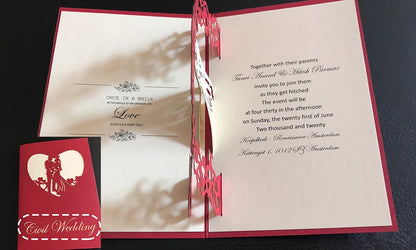 ONCE IN A WHILE
IN THE MIDDLE OF AN ORDINARY LIFE
Love
GIVES US A FAIRY TALE
Together with their parents
Tanvi Anand & Hitesh Parmar
invite you to join them
as they get hitched
The event will be
at four thirty in the afternoon
on Sunday, the twenty first of june
Two thousand and twenty
Koepelkerk - Renaissance Amsterdam
Kattengat 1, 1012 SZ Amsterdam
Civil Wedding